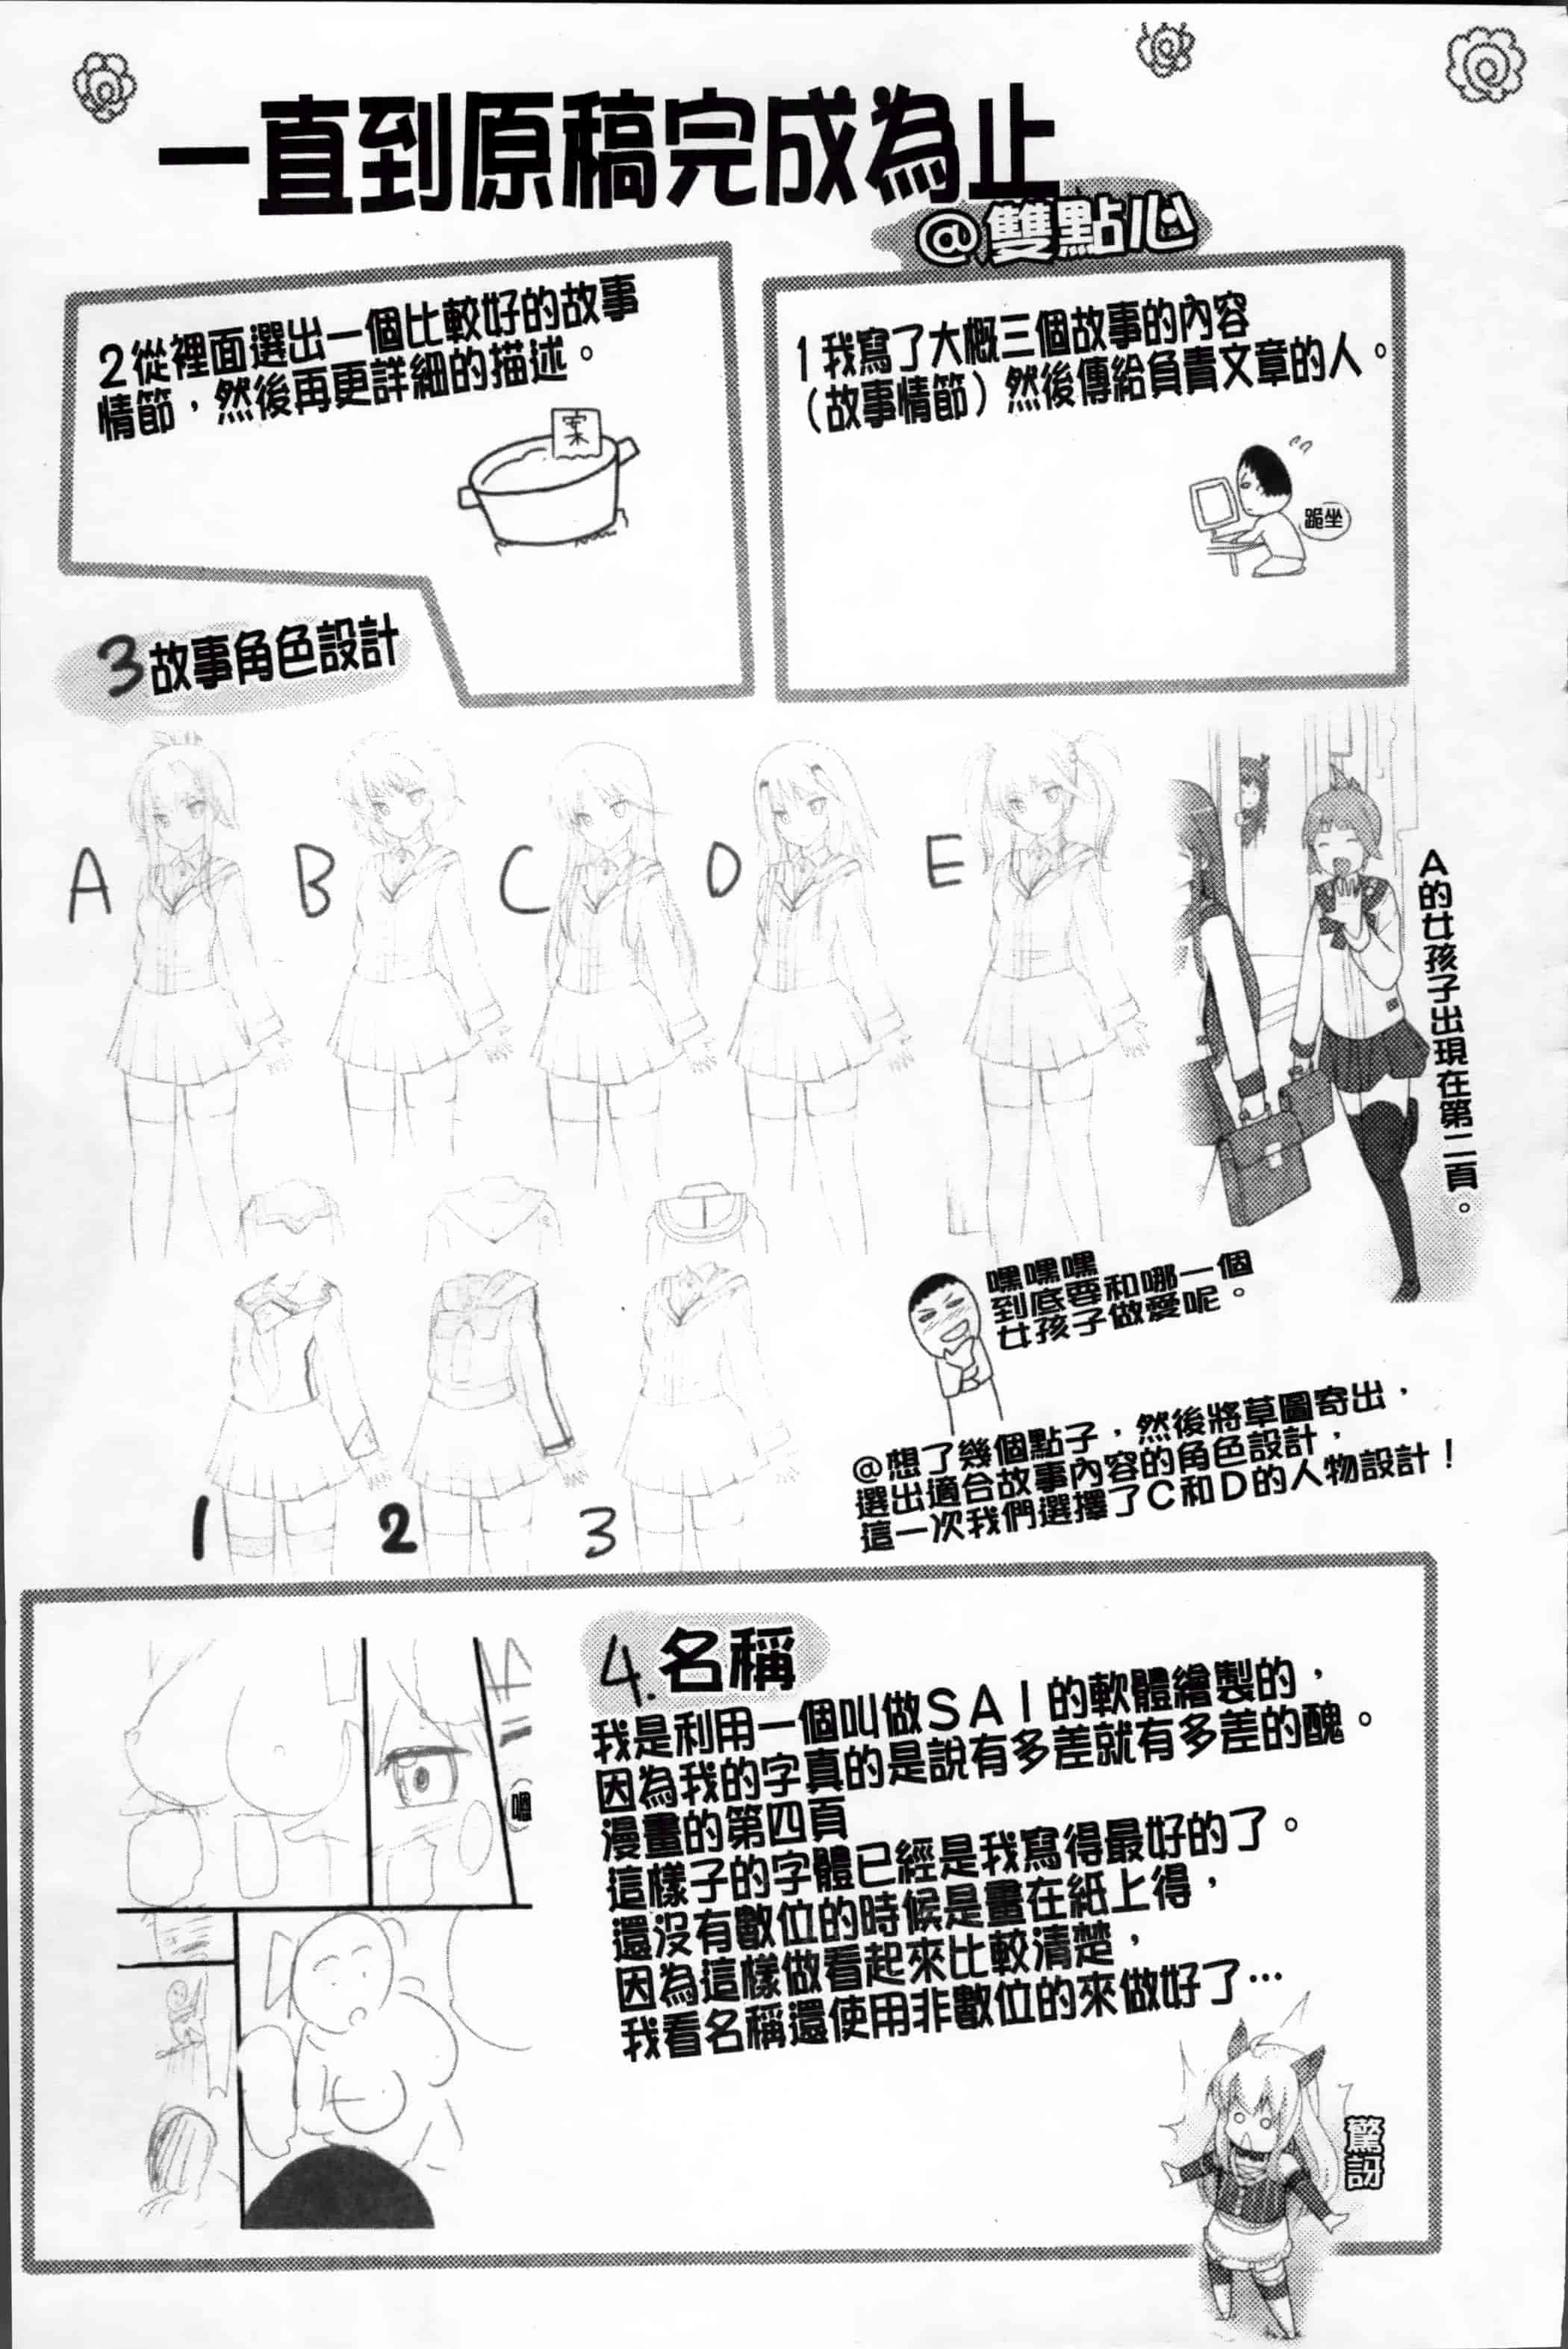 一直到原稿完成為止
@雙點心
1我寫了大概三個故事的內容
（故事情節）然後傳給負責文章的人。
跪坐
2從裡面選出一個比較好的故事
情節，然後再更詳細的描述。
案
3故事角色設計
A
B
C
D
E
A的女孩子出現在第二頁。
1
2
3
嘿嘿嘿
到底要和哪一個
女孩子做愛呢。
@想了幾個點子，然後將草圖寄出，
選出適合故事內容的角色設計，
這一次我們選擇了C和D的人物設計！
4.名稱
我是利用一個叫做SAI的軟體繪製的，
因為我的字真的是說有多差就有多差的醜。
漫畫的第四頁
這樣子的字體已經是我寫得最好的了。
還沒有數位的時候是畫在紙上得，
因為這樣做看起來比較清楚，
我看名稱還使用非數位的來做好了…
嗯
驚訝